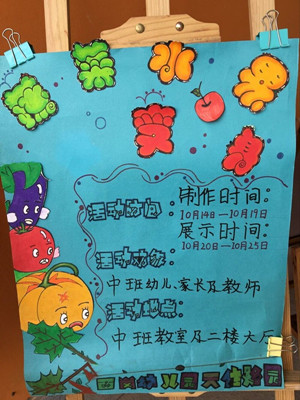 活动时间：
制作时间：
10月14日—10月19日
展示时间：
10月20日—10月25日
活动对象：
中班幼儿、家长及教师
活动地点：
中班教室及二楼大厅
幼儿园